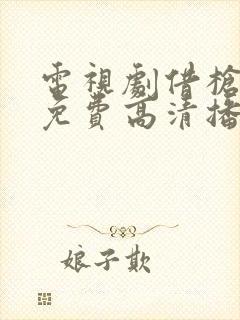 電視劇借槍
免費高清播
娘子欺